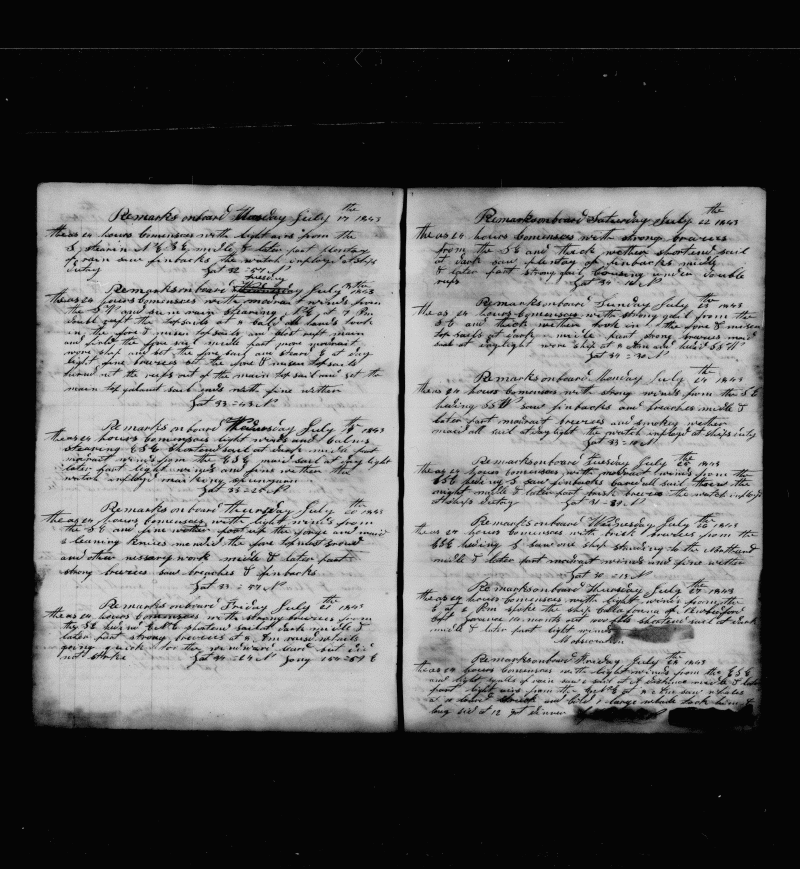 Remarks onboard Monday July 17th 1843
theas 24 hours comenses with light airs from the
S stearin N E S E midle & later part plentay
of rain saw finbacks the watch imployd at ships
dutay Lat 32=54 N
Remarks onboard Tuesday July 18th 1843
theas 24 hours comenses with modrait winds from
the S W and sum rain stearing at 7 Pm
double reeft the topsails at all hands took
in the fore & misen topsails and close reeft main
and furld the fore sail midle part more modrait
wore ship and set the fore sail and steard E at day
light fine breezes set the fore & misen topsails
turnd out the reefs out of the main top sail and set the
main top galant sail ends with fine wether
Lat 33=43 N
Remarks onboard Wednesday July 19th 1843
theas 24 hours comenses light winds and calms
stearing E S E shortend sail at dark midle part
modrait winds from the E S E maid sail at day light
later part light winds and fine wether the
watch imployd making spunyarn
Lat 33=25 N
Remarks onboard Thursday July 20th 1843
theas 24 hours comenses with light winds from
the S E and fine wether foot up the forge and maid
a leaning knies mended the fore topmast
and other nessary work midle & later part
strong breezes saw breaches & finbacks
Lat 33=47 N
Remarks onboard Friday July 21 1843
theas 24 hours comenses with strong breezes from
the S E shortend sail at dark midle &
later part strong breezes at 8 Am raised whails
going quick to the windward but did
not strike Lat 34=24 N Long 154=57 E
Remarks onboard Saturday July 22th 1843
theas 24 hours comenses with strong breezes
from the S E and thick wether shortend sail
at dark saw plentay of finbacks midle
& later part strong gail cruising under double
reefs Lat 34=14 N
Remarks onboard Sunday July 23th 1843
theas 24 hours comenses with strong gail from the
S E and thick wether took in the fore & misen
top sails at dark midle part strong breezes maid
sail at daylight wore ship at 8 Am and heded S S W
Lat 34=30 N
Remarks onboard Monday July 24th 1843
theas 24 hours comenses with strong winds from the S E
heding S S W saw finbacks and breaches midle &
later part modrait breezes and smokey wether
maid all sail at day light the watch imployd at ships duty
Lat 33=10 N
Remarks onboard Tuesday July 25th 1843
theas 24 hours comenses with modrait winds from the
E S E heding S saw finbacks all sail the
night midle & later part brisk breezes the watch imployd
at ships dutay Lat 31=39 N
Remarks onboard Wednesday July 26th 1843
theas 24 hours comenses with brisk breezes from the
E S E heding S saw one ship standing to the Northard
midle & later part modrait winds and fine wether
Lat 30=13 N
Remarks onboard Thursday July 27th 1843
theas 24 hours comenses with light winds from the
E at 6 Pm spoke the ship Calla of
Capt 10 months out 100 bbls shortend sail at dark
midle & later part light winds
No
Remarks onboard Friday July 28th 1843
theas 24 hours comenses with light winds from the E S E
and light squalls of rain saw a sail at A distance midle & later
part light airs from the at 8 Am saw whales
at lowrd struck and kild 1 large whale took him
long sid at 12 got dinner